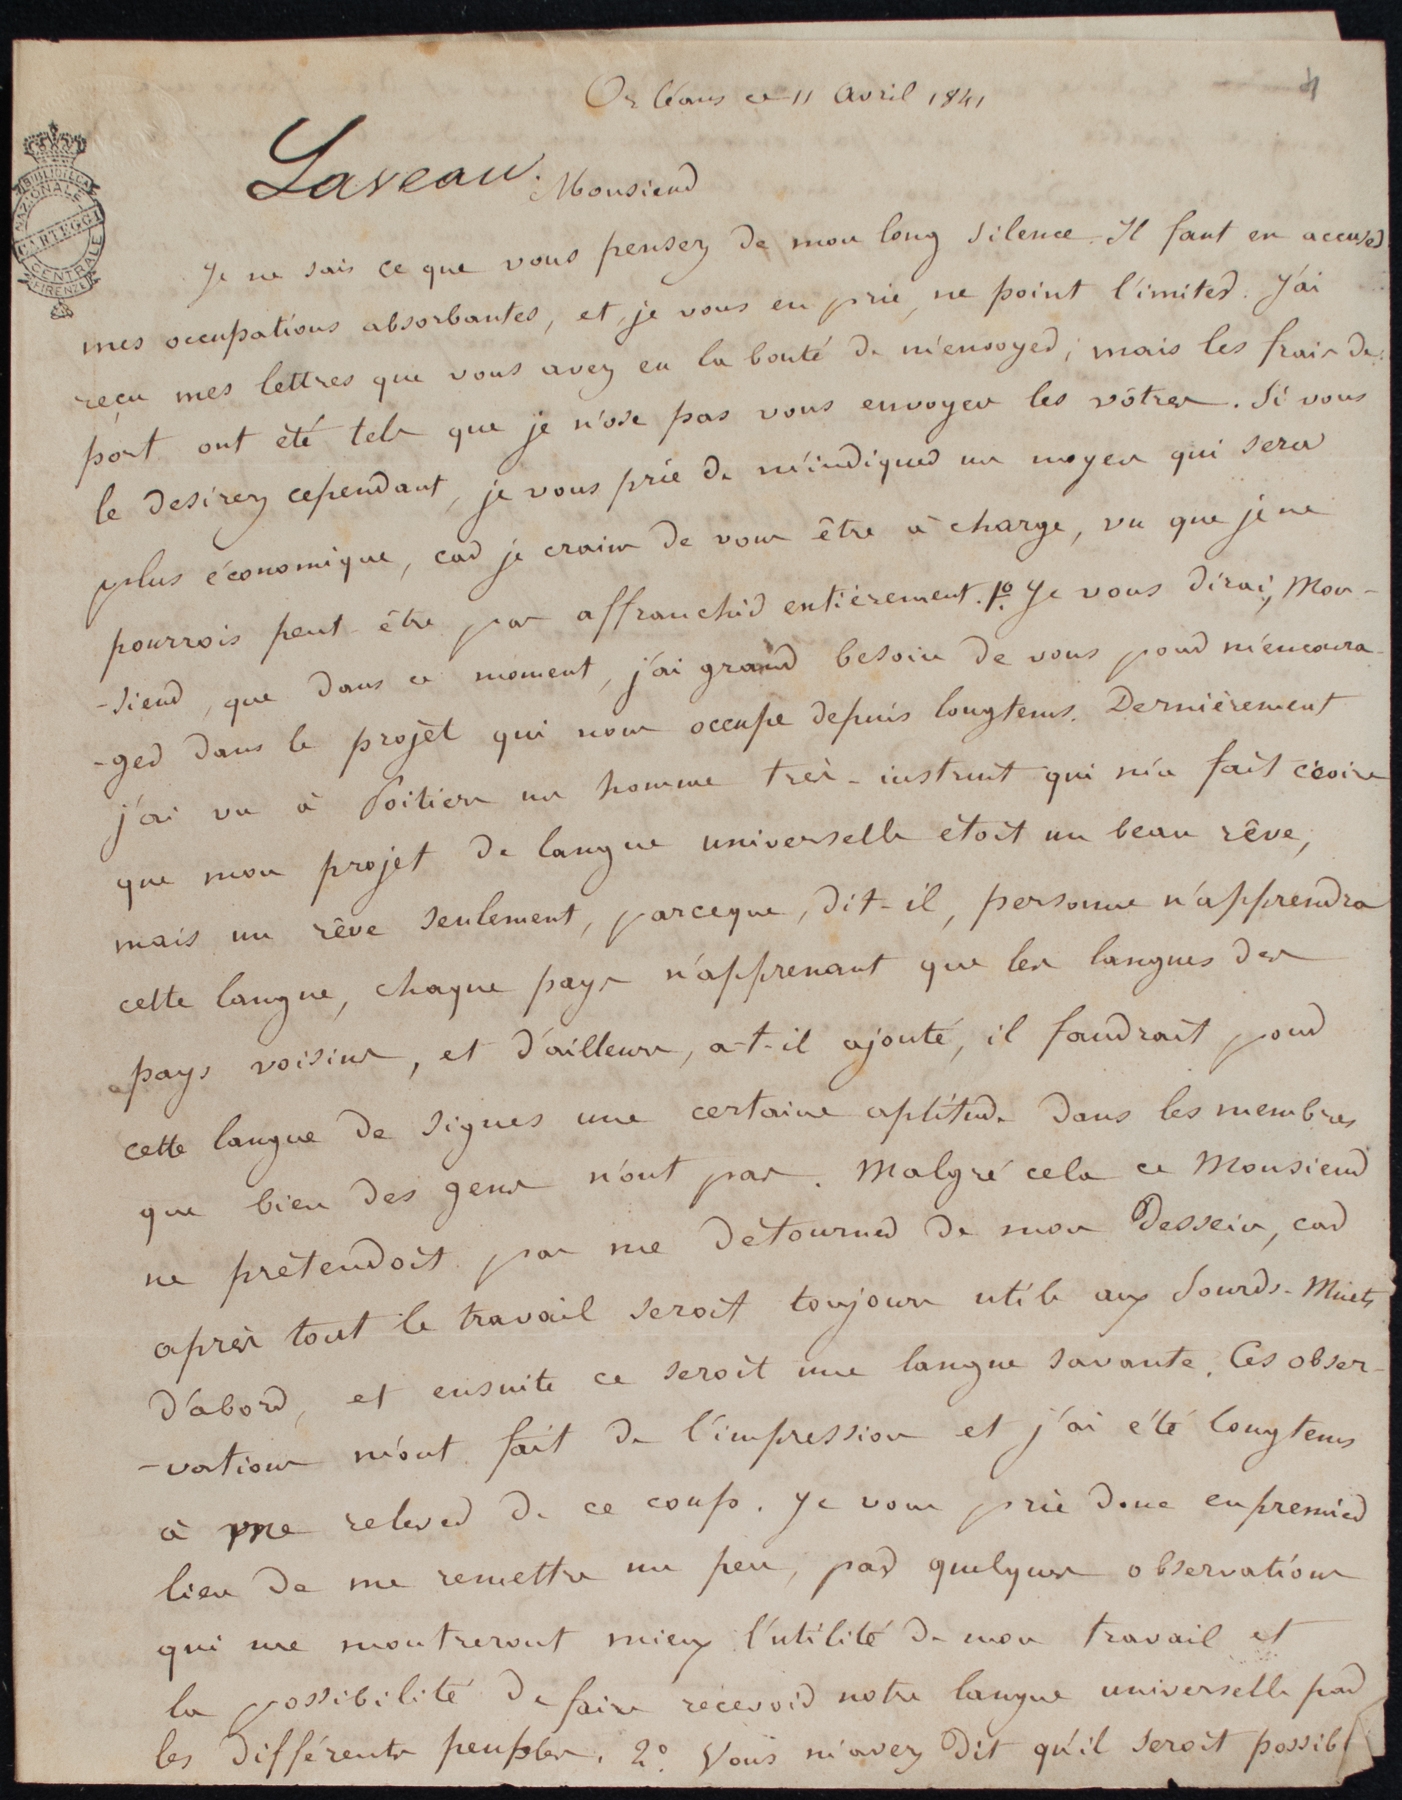 4
Orléans ce 11 avril 1841
Laveau. Monsieur
BIBLIOTECA NAZIONALE CENTRALE FIRENZE
CARTEGGI
Je ne sais ce que vous pensez de mon long silence. Il faut en accuser
mes occupations absorbantes, et, je vous en prie, ne point l'imiter. J'ai
reçu mes lettres que vous avez eu la bonté de m'envoyer; mais les frais de
port ont été tels que je n'ose pas vous envoyer les vôtres. Si vous
le desirez cependant, je vous prie de m'indiquer un moyen qui sera
plus économique, car je crains de vous être à charge, vu que je ne
pourrois peut-être pas affranchir entièrement. 1º. Je vous dirai, Mon-
-sieur, que dans ce moment, j'ai grand besoin de vous pour m'encoura-
-ger dans le projet qui nous occupe depuis longtems. Dernièrement
j'ai vu à Poitiers un homme très-instruit qui m'a fait croire
que mon projet de langue universelle étoit un beau rêve,
mais un rêve seulement, parceque, dit-il, personne n'apprendra
cette langue, chaque pays n'apprenant que les langues des
pays voisins, et d'ailleurs, a-t-il ajouté, il faudrait pour
cette langue de signes une certaine aptitude dans les membres
que bien des gens n'ont pas. Malgré cela ce Monsieur
ne prétendoit pas me détourner de mon dessein, car
après tout le travail seroit toujours utile aux Sourds-Muets
d'abord, et ensuite ce seroit une langue savante. Ces obser-
-vations m'ont fait de l'impression et j'ai été longtems
à me relever de ce coup. Je vous prie donc en premier
lieu de me remettre un peu, par quelques observations
qui me montreront mieux l'utilité de mon travail et
la possibilité de faire recevoir notre langue universelle par
les différents peuples. 2º. Vous m'avez dit qu'il seroit possible